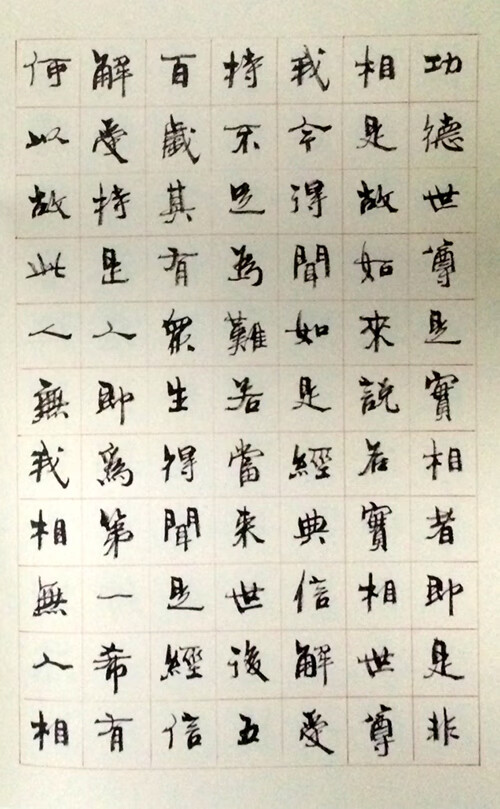 功德世尊是實相者即是非
相是故如來說若實相世尊
我今得聞如是經典信解受
持不足為難若當来世後五
百歲其有眾生得聞是經信
解受持是人即為第一希有
何以故此人無我相無人相